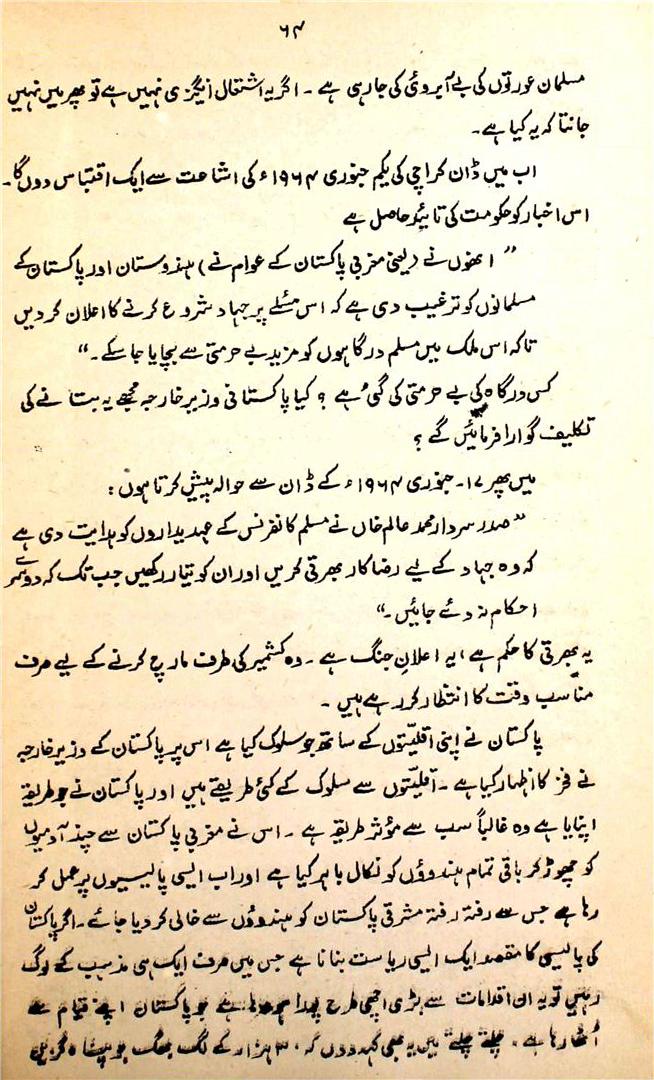 ۶۴
مسلمان عورتوں کی بے آبروئی کی جا رہی ہے ۔ اگر یہ اشتعال انگیزی نہیں ہے تو پھر میں نہیں
جانتا کہ یہ کیا ہے ۔
اب میں ڈان کراچی کی یکم جنوری ۱۹۶۴ء کی اشاعت سے ایک اقتباس دوں گا ۔
اس اخبار کو حکومت کی تائید حاصل ہے
” انھوں نے (یعنی مغربی پاکستان کے عوام نے) ہندوستان اور پاکستان کے
مسلمانوں کو ترغیب دی ہے کہ اس مسئلے پر جہاد شروع کرنے کا اعلان کر دیں
تاکہ اس ملک میں مسلم درگاہوں کو مزید بے حرمتی سے بچایا جا سکے ۔“
کس درگاہ کی بے حرمتی کی گئی ہے ؟ کیا پاکستانی وزیر خارجہ مجھے یہ بتانے کی
تکلیف گوارا فرمائیں گے ؟
میں پھر ۱۷ ۔ جنوری ۱۹۶۴ء کے ڈان سے حوالہ پیش کرتا ہوں :
” صدر سردار محمد عالم خاں نے مسلم کانفرنس کے عہدیداروں کو ہدایت دی ہے
کہ وہ جہاد کے لیے رضا کار بھرتی کریں اور ان کو تیار رکھیں جب تک کہ دوسرے
احکام نہ دئے جائیں ۔“
یہ بھرتی کا حکم ہے ، یہ اعلانِ جنگ ہے ۔ وہ کشمیر کی طرف مارچ کرنے کے لیے صرف
مناسب وقت کا انتظار کر رہے ہیں ۔
پاکستان نے اپنی اقلیتوں کے ساتھ جو سلوک کیا ہے اس پر پاکستان کے وزیر خارجہ
نے فخر کا اظہار کیا ہے ۔ اقلیتوں سے سلوک کے کئی طریقے ہیں اور پاکستان نے جو طریقہ
اپنایا ہے وہ غالباً سب سے مؤثر طریقہ ہے ۔ اس نے مغربی پاکستان سے چند آدمیوں
کو چھوڑ کر باقی تمام ہندوؤں کو نکال باہر کیا ہے اور اب ایسی پالیسیوں پر عمل کر
رہا ہے جس سے رفتہ رفتہ مشرقی پاکستان کو ہندوؤں سے خالی کر دیا جائے ۔ اگر پاکستان
کی پالیسی کا مقصد ایک ایسی ریاست بنانا ہے جس میں صرف ایک ہی مذہب کے لوگ
رہیں تو یہ ان اقدامات سے بڑی اچھی طرح پورا ہو رہا ہے جو پاکستان اپنے قیام سے
اٹھا رہا ہے ۔ چلتے چلتے میں یہ بھی کہہ دوں کہ ۳۰ ہزار کے لگ بھگ